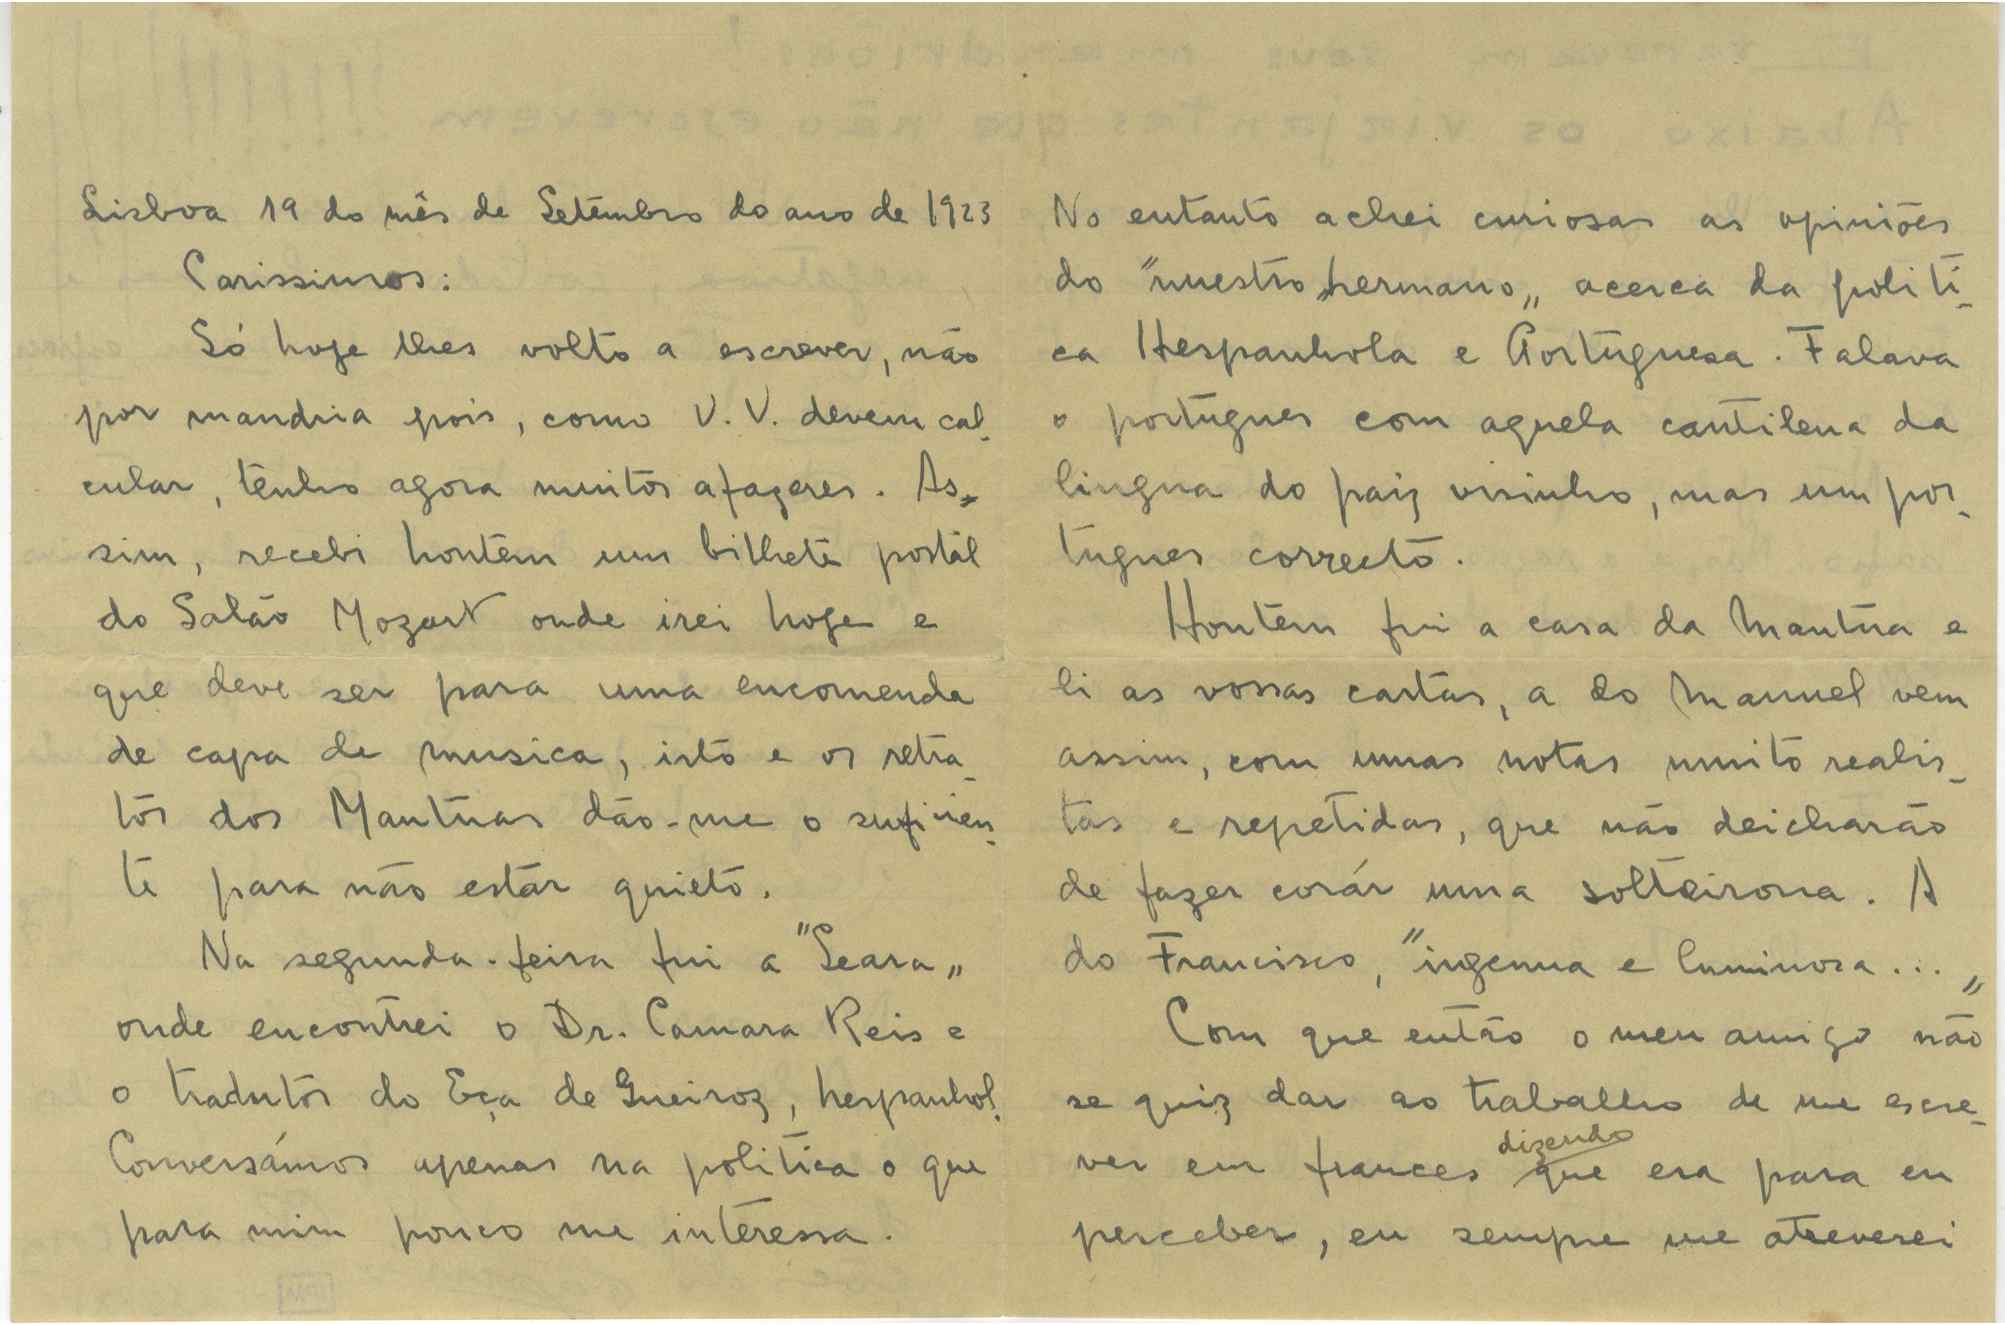 Lisboa 19 do mês de Setembro do ano de 1923
Carissimos:
Só hoje lhes volto a escrever, não
por mandria pois, como V. V. devem cal-
cular, tenho agora muitos afazeres. As-
sim, recebi hontem um bilhete postal
do Salão Mozart onde irei hoje e
que deve ser para uma encomenda
de capa de musica, isto e os retra-
tos dos Mantuas dão-me o suficien-
te para não estar quieto.
Na segunda-feira fui a "Seara„
onde encontrei o Dr. Camara Reis e
o tradutor do Eça de Queiroz, hespanhol.
Conversámos apenas na politica o que
para mim pouco me interessa.
No entanto achei curiosas as opiniões
do "nuestro hermano„ acerca da politi-
ca Hespanhola e Portuguesa. Falava
o portugues com aquela cantilena da
lingua do paiz visinho, mas um por-
tugues correcto.
Hontem fui a casa da Mantua e
li as vossas cartas, a do Manuel vem
assim, com umas notas muito realis-
tas e repetidas, que não deicharão
de fazer corár uma solteirona. A
do Francisco, "ingenua e luminosa...„
Com que então o meu amigo não
se quiz dar ao traballho de me escre-
ver em frances dizendo que era para eu
perceber, eu sempre me atreverei